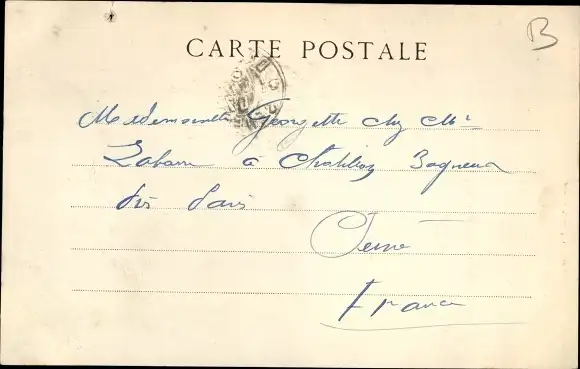 B
CARTE POSTALE
Mademoiselle Georgette chez Mr
Labarre à Chatillon Bagneux
près Paris
Seine
France